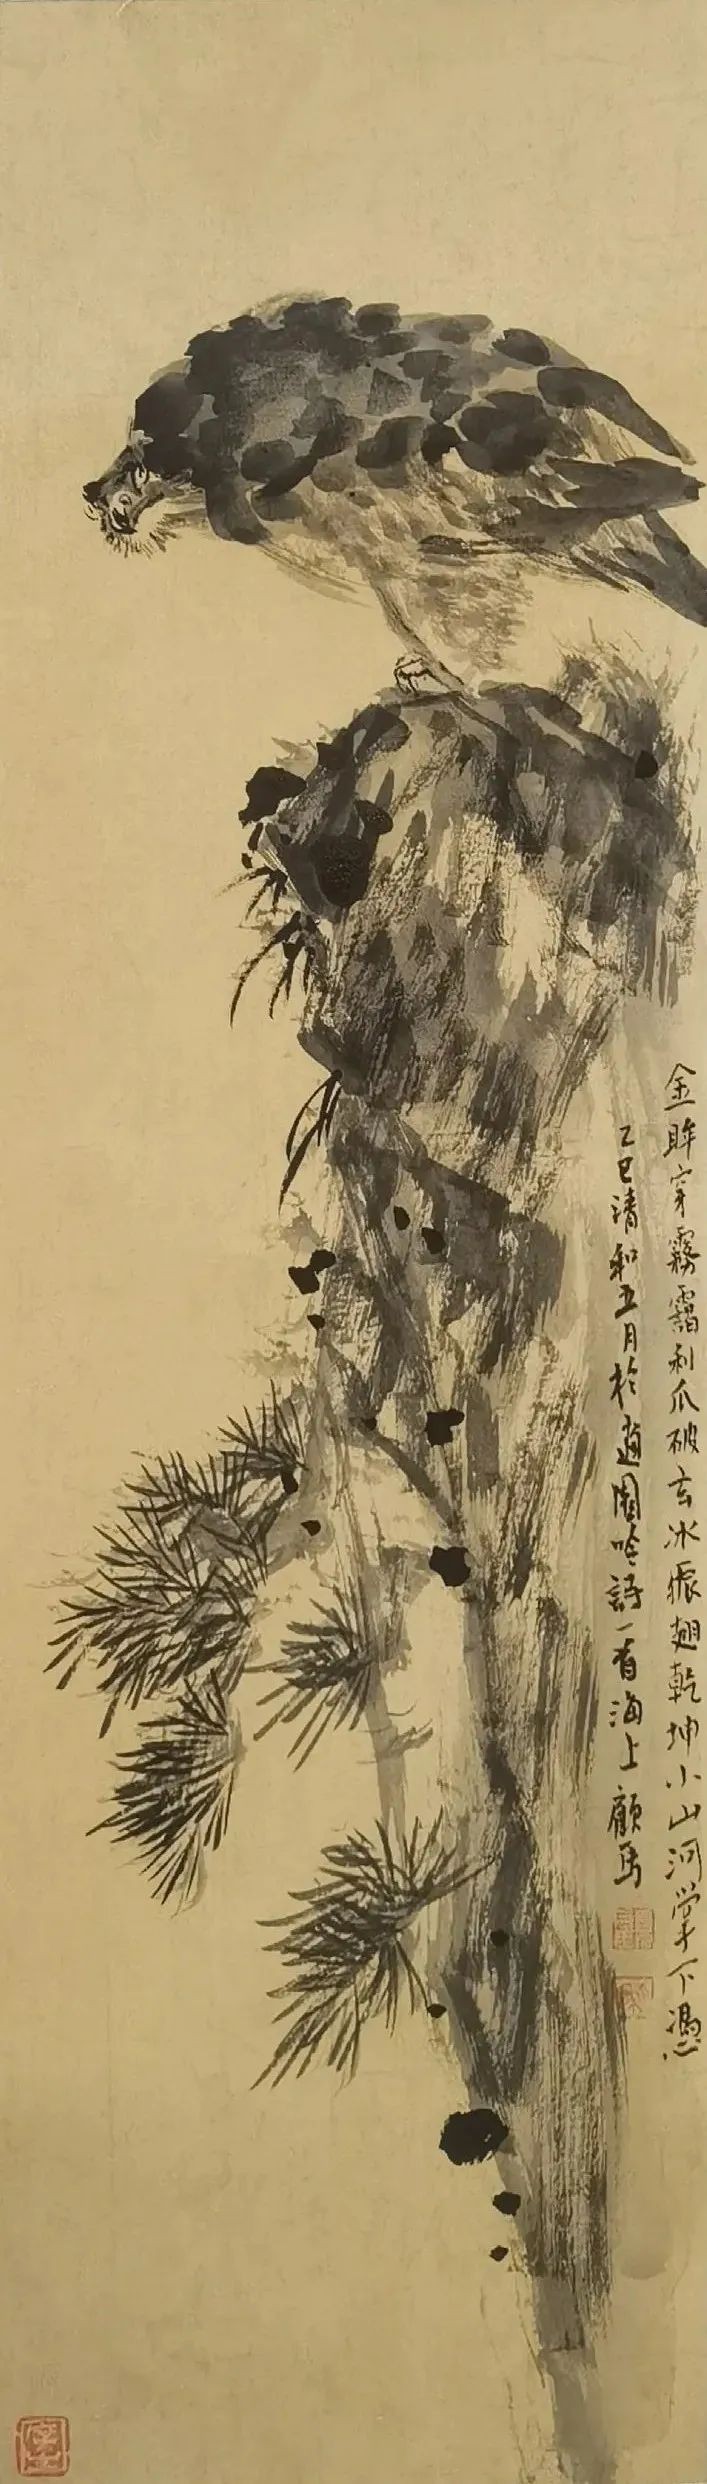 金眸穿霧靄利爪破玄冰振翅乾坤小山河掌下憑
乙巳清和五月於逍園吟詩一首海上顧馬